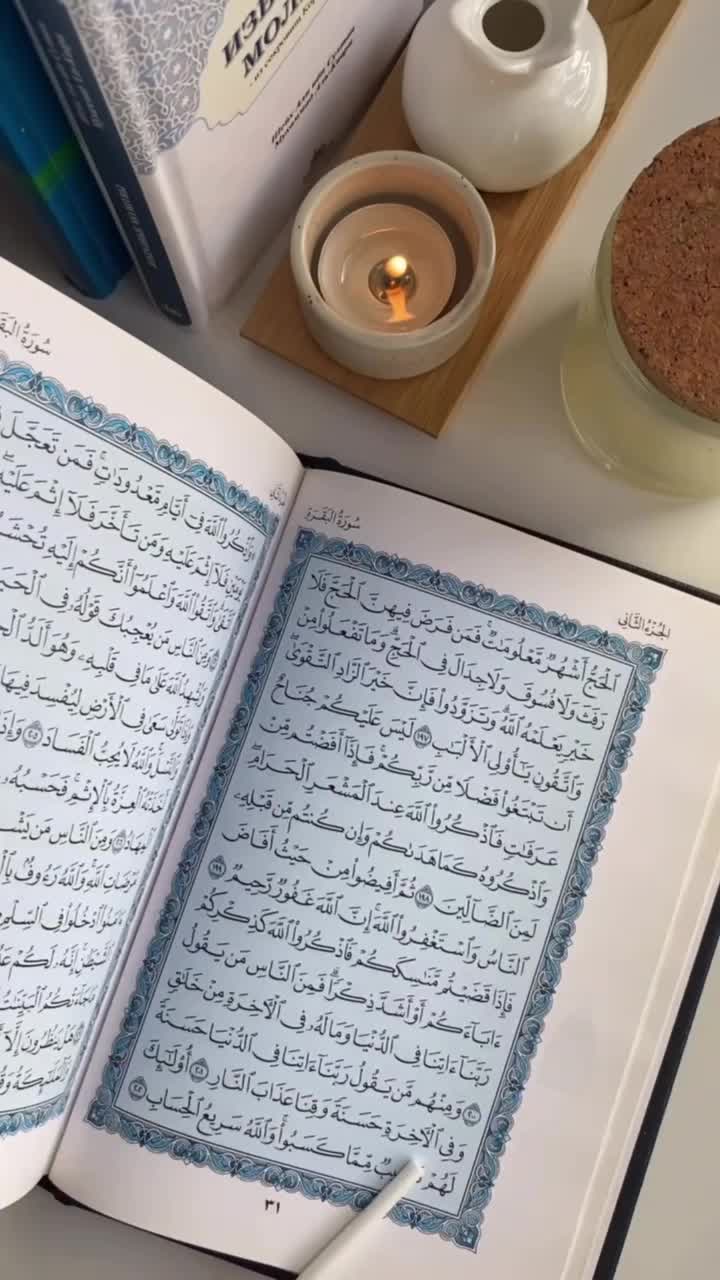 ИЗБ
МОЛ
سُورَةُ البَقَرَةِ
الجُزْءُ الثَّانِي
ٱلْحَجُّ أَشْهُرٌ مَّعْلُومَٰتٌ ۚ فَمَن فَرَضَ فِيهِنَّ ٱلْحَجَّ فَلَا
رَفَثَ وَلَا فُسُوقَ وَلَا جِدَالَ فِي ٱلْحَجِّ ۗ وَمَا تَفْعَلُوا۟ مِنْ
خَيْرٍ يَعْلَمْهُ ٱللَّهُ ۗ وَتَزَوَّدُوا۟ فَإِنَّ خَيْرَ ٱلزَّادِ ٱلتَّقْوَىٰ ۚ
وَٱتَّقُونِ يَٰٓأُو۟لِي ٱلْأَلْبَٰبِ ١٩٧ لَيْسَ عَلَيْكُمْ جُنَاحٌ
أَن تَبْتَغُوا۟ فَضْلًا مِّن رَّبِّكُمْ ۚ فَإِذَآ أَفَضْتُم مِّنْ
عَرَفَٰتٍ فَٱذْكُرُوا۟ ٱللَّهَ عِندَ ٱلْمَشْعَرِ ٱلْحَرَامِ ۖ
وَٱذْكُرُوهُ كَمَا هَدَىٰكُمْ وَإِن كُنتُم مِّن قَبْلِهِۦ
لَمِنَ ٱلضَّآلِّينَ ١٩٨ ثُمَّ أَفِيضُوا۟ مِنْ حَيْثُ أَفَاضَ
ٱلنَّاسُ وَٱسْتَغْفِرُوا۟ ٱللَّهَ ۚ إِنَّ ٱللَّهَ غَفُورٌ رَّحِيمٌ ١٩٩
فَإِذَا قَضَيْتُم مَّنَٰسِكَكُمْ فَٱذْكُرُوا۟ ٱللَّهَ كَذِكْرِكُمْ
ءَابَآءَكُمْ أَوْ أَشَدَّ ذِكْرًا ۗ فَمِنَ ٱلنَّاسِ مَن يَقُولُ
رَبَّنَآ ءَاتِنَا فِي ٱلدُّنْيَا وَمَا لَهُۥ فِي ٱلْءَاخِرَةِ مِنْ خَلَٰقٍ
٢٠٠ وَمِنْهُم مَّن يَقُولُ رَبَّنَآ ءَاتِنَا فِي ٱلدُّنْيَا حَسَنَةً
وَفِي ٱلْءَاخِرَةِ حَسَنَةً وَقِنَا عَذَابَ ٱلنَّارِ ٢٠١ أُو۟لَٰٓئِكَ
لَهُمْ مِّمَّا كَسَبُوا۟ ۚ وَٱللَّهُ سَرِيعُ ٱلْحِسَابِ ٢٠٢
٣١
سُورَةُ
وَٱذْكُرُوا۟ ٱللَّهَ فِيٓ أَيَّامٍ مَّعْدُودَٰتٍ ۚ فَمَن تَعَجَّلَ
فَلَآ إِثْمَ عَلَيْهِ وَمَن تَأَخَّرَ فَلَآ إِثْمَ عَلَيْهِ ۖ
وَٱتَّقُوا۟ ٱللَّهَ وَٱعْلَمُوٓا۟ أَنَّكُمْ إِلَيْهِ
وَمِنَ ٱلنَّاسِ مَن يُعْجِبُكَ قَوْلُهُۥ فِي
عَلَىٰ مَا فِي قَلْبِهِۦ وَهُوَ أَلَدُّ
سَعَىٰ فِي ٱلْأَرْضِ لِيُفْسِدَ فِيهَا
وَٱللَّهُ لَا يُحِبُّ ٱلْفَسَادَ ٢٠٥
ٱلْعِزَّةُ بِٱلْإِثْمِ ۚ فَحَسْبُهُۥ
وَمِنَ ٱلنَّاسِ مَن
ٱللَّهِ ۗ وَٱللَّهُ رَءُوفٌۢ
ٱدْخُلُوا۟ فِي
إِنَّهُۥ لَكُمْ